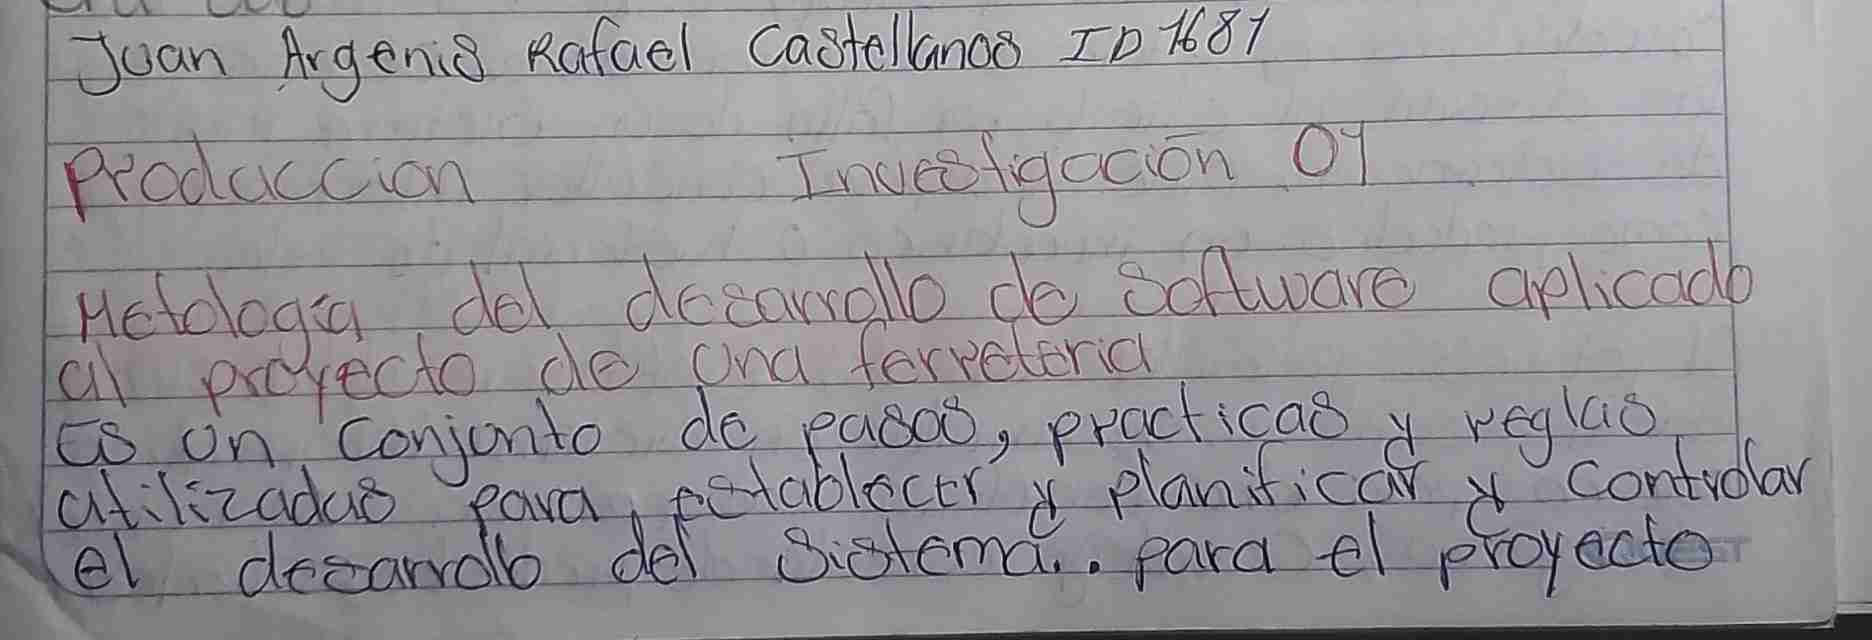 Juan Argenis Rafael Castellanos ID 1681
Produccion Investigación 01
Metologia del desarrollo de Software aplicado
al proyecto de una ferreteria
Es un conjunto de pasos, practicas y reglas
utilizadas para establecer y planificar y controlar
el desarrollo del sistema.. para el proyecto